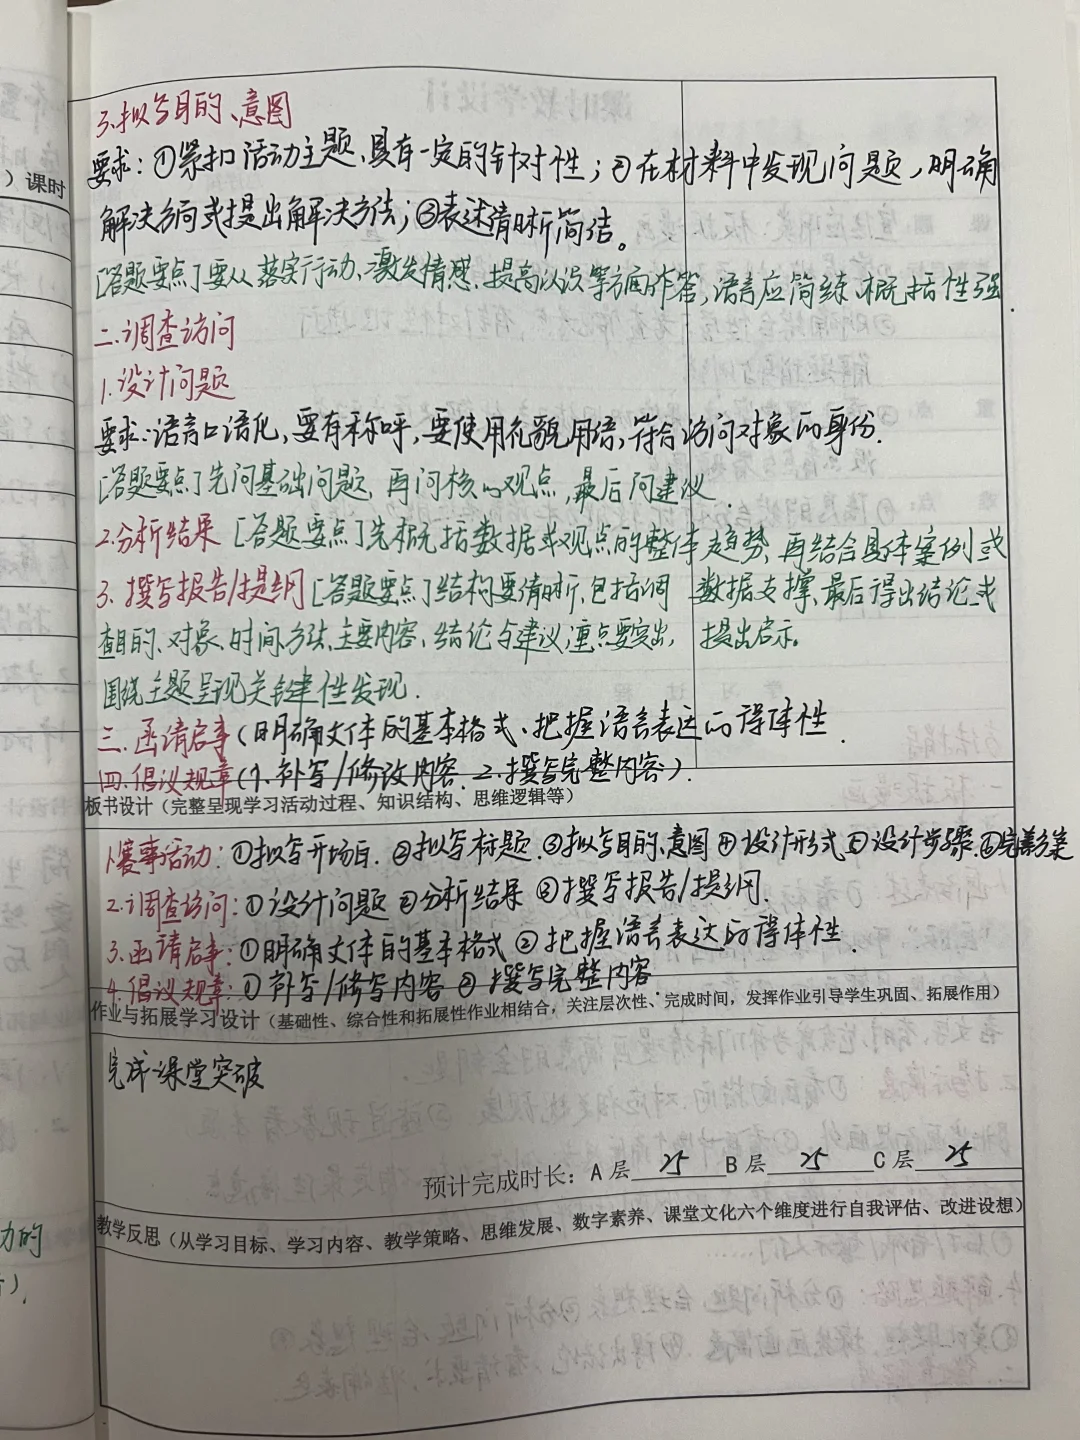 ）课时
3.拟写目的、意图
要求：①紧扣活动主题、具有一定的针对性；②在材料中发现问题，明确
解决方向或提出解决方法；③表述清晰简洁。
[答题要点]要从落实行动、激发情感、提高认识等方面作答，语言应简练、概括性强
二.调查访问
1.设计问题
要求：语言口语化，要有称呼，要使用礼貌用语，符合访问对象的身份.
[答题要点]先问基础问题，再问核心观点，最后问建议.
2.分析结果 [答题要点]先概括数据或观点的整体趋势，再结合具体案例或
数据支撑，最后得出结论或
提出启示。
3.撰写报告/提纲[答题要点]结构要清晰，包括调
查目的、对象、时间、方法、主要内容、结论与建议；重点要突出，
围绕主题呈现关键性发现.
三.函请启事(明确文体的基本格式、把握语言表达的得体性.
四.倡议规章(1.补写/修改内容 2.撰写完整内容).
板书设计（完整呈现学习活动过程、知识结构、思维逻辑等）
1.赛事活动：①拟写开场白.②拟写标题.③拟写目的、意图④设计形式⑤设计步骤.⑥完善方案
2.调查访问：①设计问题②分析结果③撰写报告/提纲.
3.函请启事：①明确文体的基本格式②把握语言表达的得体性.
4.倡议规章：①补写/修写内容②撰写完整内容.
作业与拓展学习设计（基础性、综合性和拓展性作业相结合，关注层次性、完成时间，发挥作业引导学生巩固、拓展作用）
完成课堂突破
预计完成时长：A层 25 B层 25 C层 25
教学反思（从学习目标、学习内容、教学策略、思维发展、数字素养、课堂文化六个维度进行自我评估、改进设想）